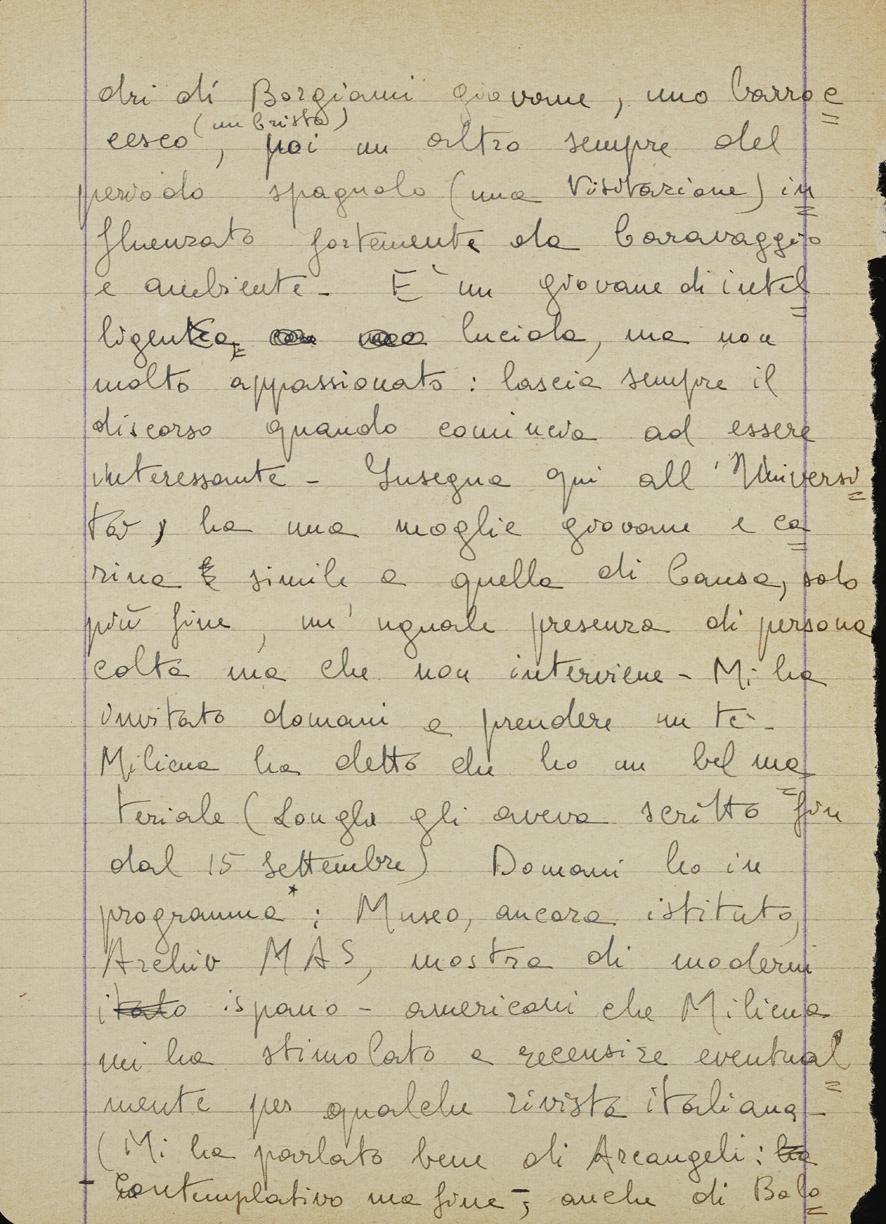 dri di Borgiani giovane, uno barroc=
(un Cristo)
cesco, poi un altro sempre del
periodo spagnolo (una Visitazione) in=
fluenzato fortemente da Caravaggio
e ambiente - E' un giovane di intel=
ligenza, lucida, ma non
molto appassionato: lascia sempre il
discorso quando comincia ad essere
interessante - Insegna qui all'Universi=
tà, ha una moglie giovane e ca=
rina simile a quella di Causa, solo
più fine, un'uguale presenza di persona
colta ma che non interviene - Mi ha
invitato domani a prendere un tè -
Milicua ha detto che ho un bel ma=
teriale (Longhi gli aveva scritto fin
dal 15 settembre) Domani ho in
programma*: Museo, ancora istituto,
Archiv MAS, mostra di moderni
ispano-americani che Milicua
mi ha stimolato a recensire eventual=
mente per qualche rivista italiana -
(Mi ha parlato bene di Arcangeli:
- Contemplativo ma fine -, anche di Bolo=